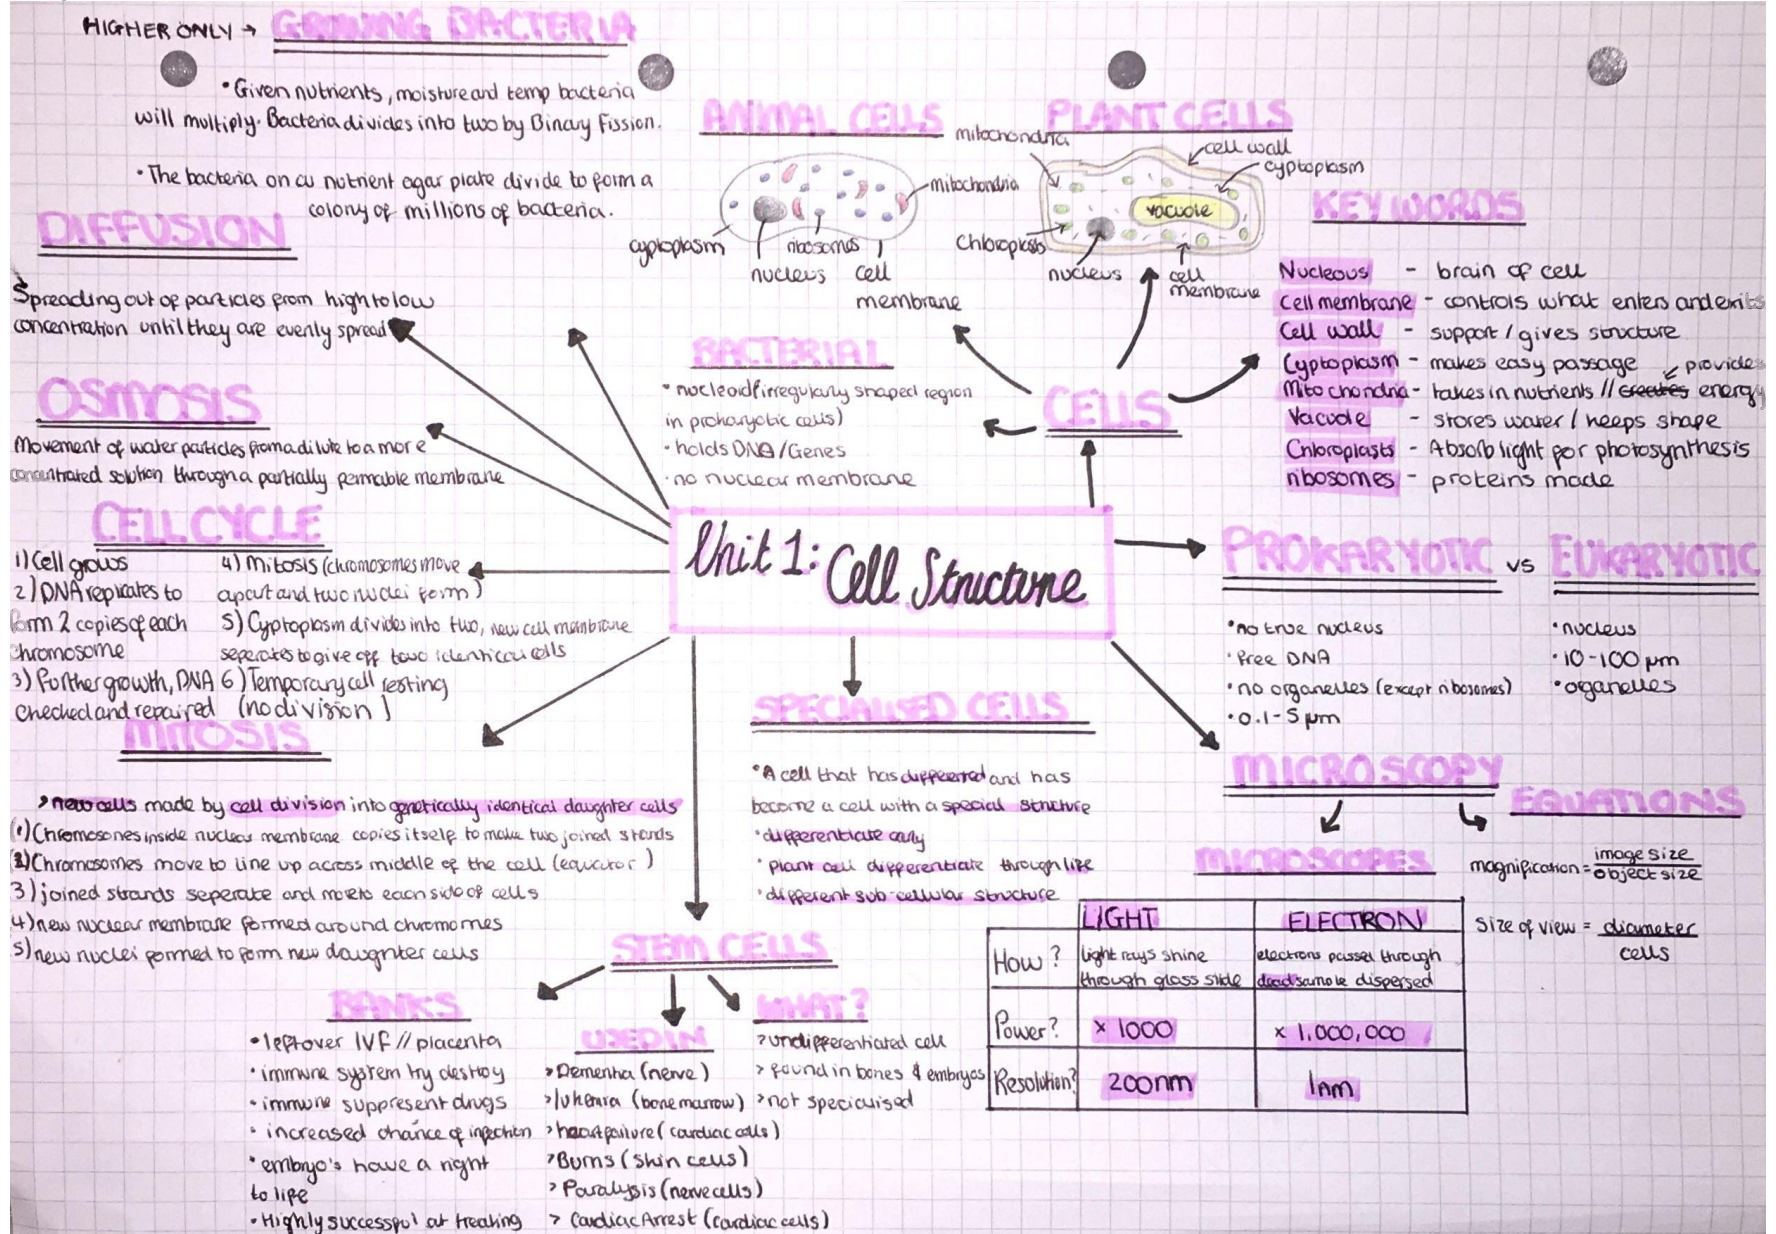 HIGHER ONLY → GROWING BACTERIA
• Given nutrients, moisture and temp bacteria
will multiply. Bacteria divides into two by Binary Fission.
• The bacteria on a nutrient agar plate divide to form a
colony of millions of bacteria.
DIFFUSION
Spreading out of particles from high to low
concentration until they are evenly spread
OSMOSIS
Movement of water particles from a dilute to a more
concentrated solution through a partially permable membrane
CELL CYCLE
1) Cell grows
2) DNA replicates to
form 2 copies of each
chromosome
3) Further growth, DNA
checked and repaired
4) Mitosis (chromosomes move
apart and two nuclei form)
5) Cyptoplasm divides into two, new cell membrane
seperates to give off two identical cells
6) Temporary cell resting
(no division)
MITOSIS
> new cells made by cell division into genetically identical daughter cells
(1) Chromosones inside nuclear membrane copies itself to make two joined strands
(2) Chromosomes move to line up across middle of the cell (equator)
3) joined strands seperate and move to each side of cells
4) new nuclear membrane formed around chromomes
5) new nuclei formed to form new daughter cells
ANIMAL CELLS
mitochondria
cyptoplasm
ribosomes
nucleus
cell
membrane
PLANT CELLS
mitochondria
cell wall
cyptoplasm
vacuole
Chloroplasts
nucleus
cell
membrane
BACTERIAL
• nucleoid (irregularly shaped region
in prokaryotic cells)
• holds DNA/Genes
• no nuclear membrane
CELLS
KEY WORDS
Nucleous - brain of cell
Cell membrane - controls what enters and exits
Cell wall - support / gives structure
Cyptoplasm - makes easy passage
provides
Mitochondria - takes in nutrients // creates energy
Vacuole - stores water / keeps shape
Chloroplasts - Absorb light for photosynthesis
ribosomes - proteins made
Unit 1: Cell Structure
PROKARYOTIC vs EUKARYOTIC
• no true nucleus
• free DNA
• no organelles (except ribosomes)
• 0.1-5 µm
• nucleus
• 10-100 µm
• organelles
SPECIALISED CELLS
• A cell that has and has
become a cell with a special structure
• differentiate early
• plant cell differentiate through life
• different sub-cellular structure
MICROSCOPY
EQUATIONS
magnification = image size
object size
size of view = diameter
cells
MICROSCOPES
LIGHT ELECTRON
How? light rays shine
through glass slide
electrons passed through
dead sample dispersed
Power? × 1000 × 1,000,000
Resolution? 200nm 1nm
STEM CELLS
BANKS
• leftover IVF // placenta
• immune system try destroy
• immune suppresent drugs
• increased chance of infection
• embryo's have a right
to life
• Highly successful at treating
USED IN
> Dementia (nerve)
> (bone marrow)
> heart failure (cardiac cells)
> Burns (skin cells)
> Paralysis (nerve cells)
> Cardiac Arrest (cardiac cells)
WHAT?
> undifferentiated cell
> found in bones & embryos
> not specialised